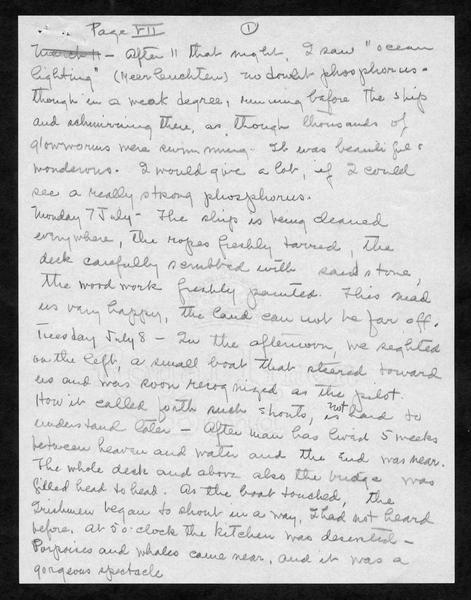 Page VII ①
March 11 - After 11 that night, I saw "ocean
lighting" (Meerleuchten) no doubt phosphorus -
though in a weak degree, running before the ship
and schimmering there, as though thousands of
glowworms were swimming. It was beautiful &
wonderous. I would give a lot, if I could
see a really strong phosphorus.
Monday 7 July - The ship is being cleaned
everywhere, the ropes freshly tarred, the
deck carefully scrubbed with sand stone,
the wood work freshly painted. This mad
us very happy, the land can not be far off.
Tuesday July 8 - In the afternoon, we sighted
on the left, a small boat that steered toward
us and was soon recognized as the pilot.
How it called forth such shouts, is not hard to
understand later - After man has lived 5 weeks
between heaven and water and the end was near.
The whole deck and above also the bridge was
filled head to head. As the boat touched, the
Irishmen began to shout in a way, I had not heard
before. At 5 o'clock the kitchen was deserted -
Porpoises and whales came near, and it was a
gorgeous spectacle